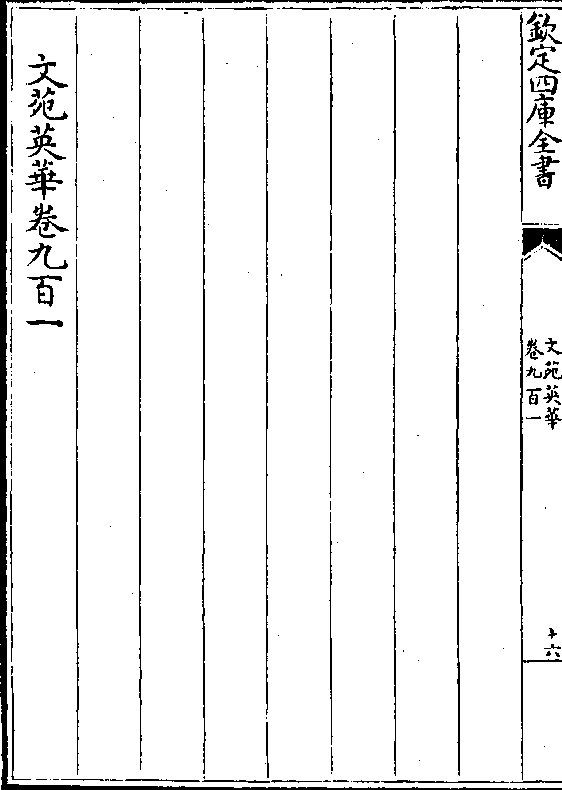 欽定四庫全書
文苑英華
卷九百一
十六
文苑英華卷九百一